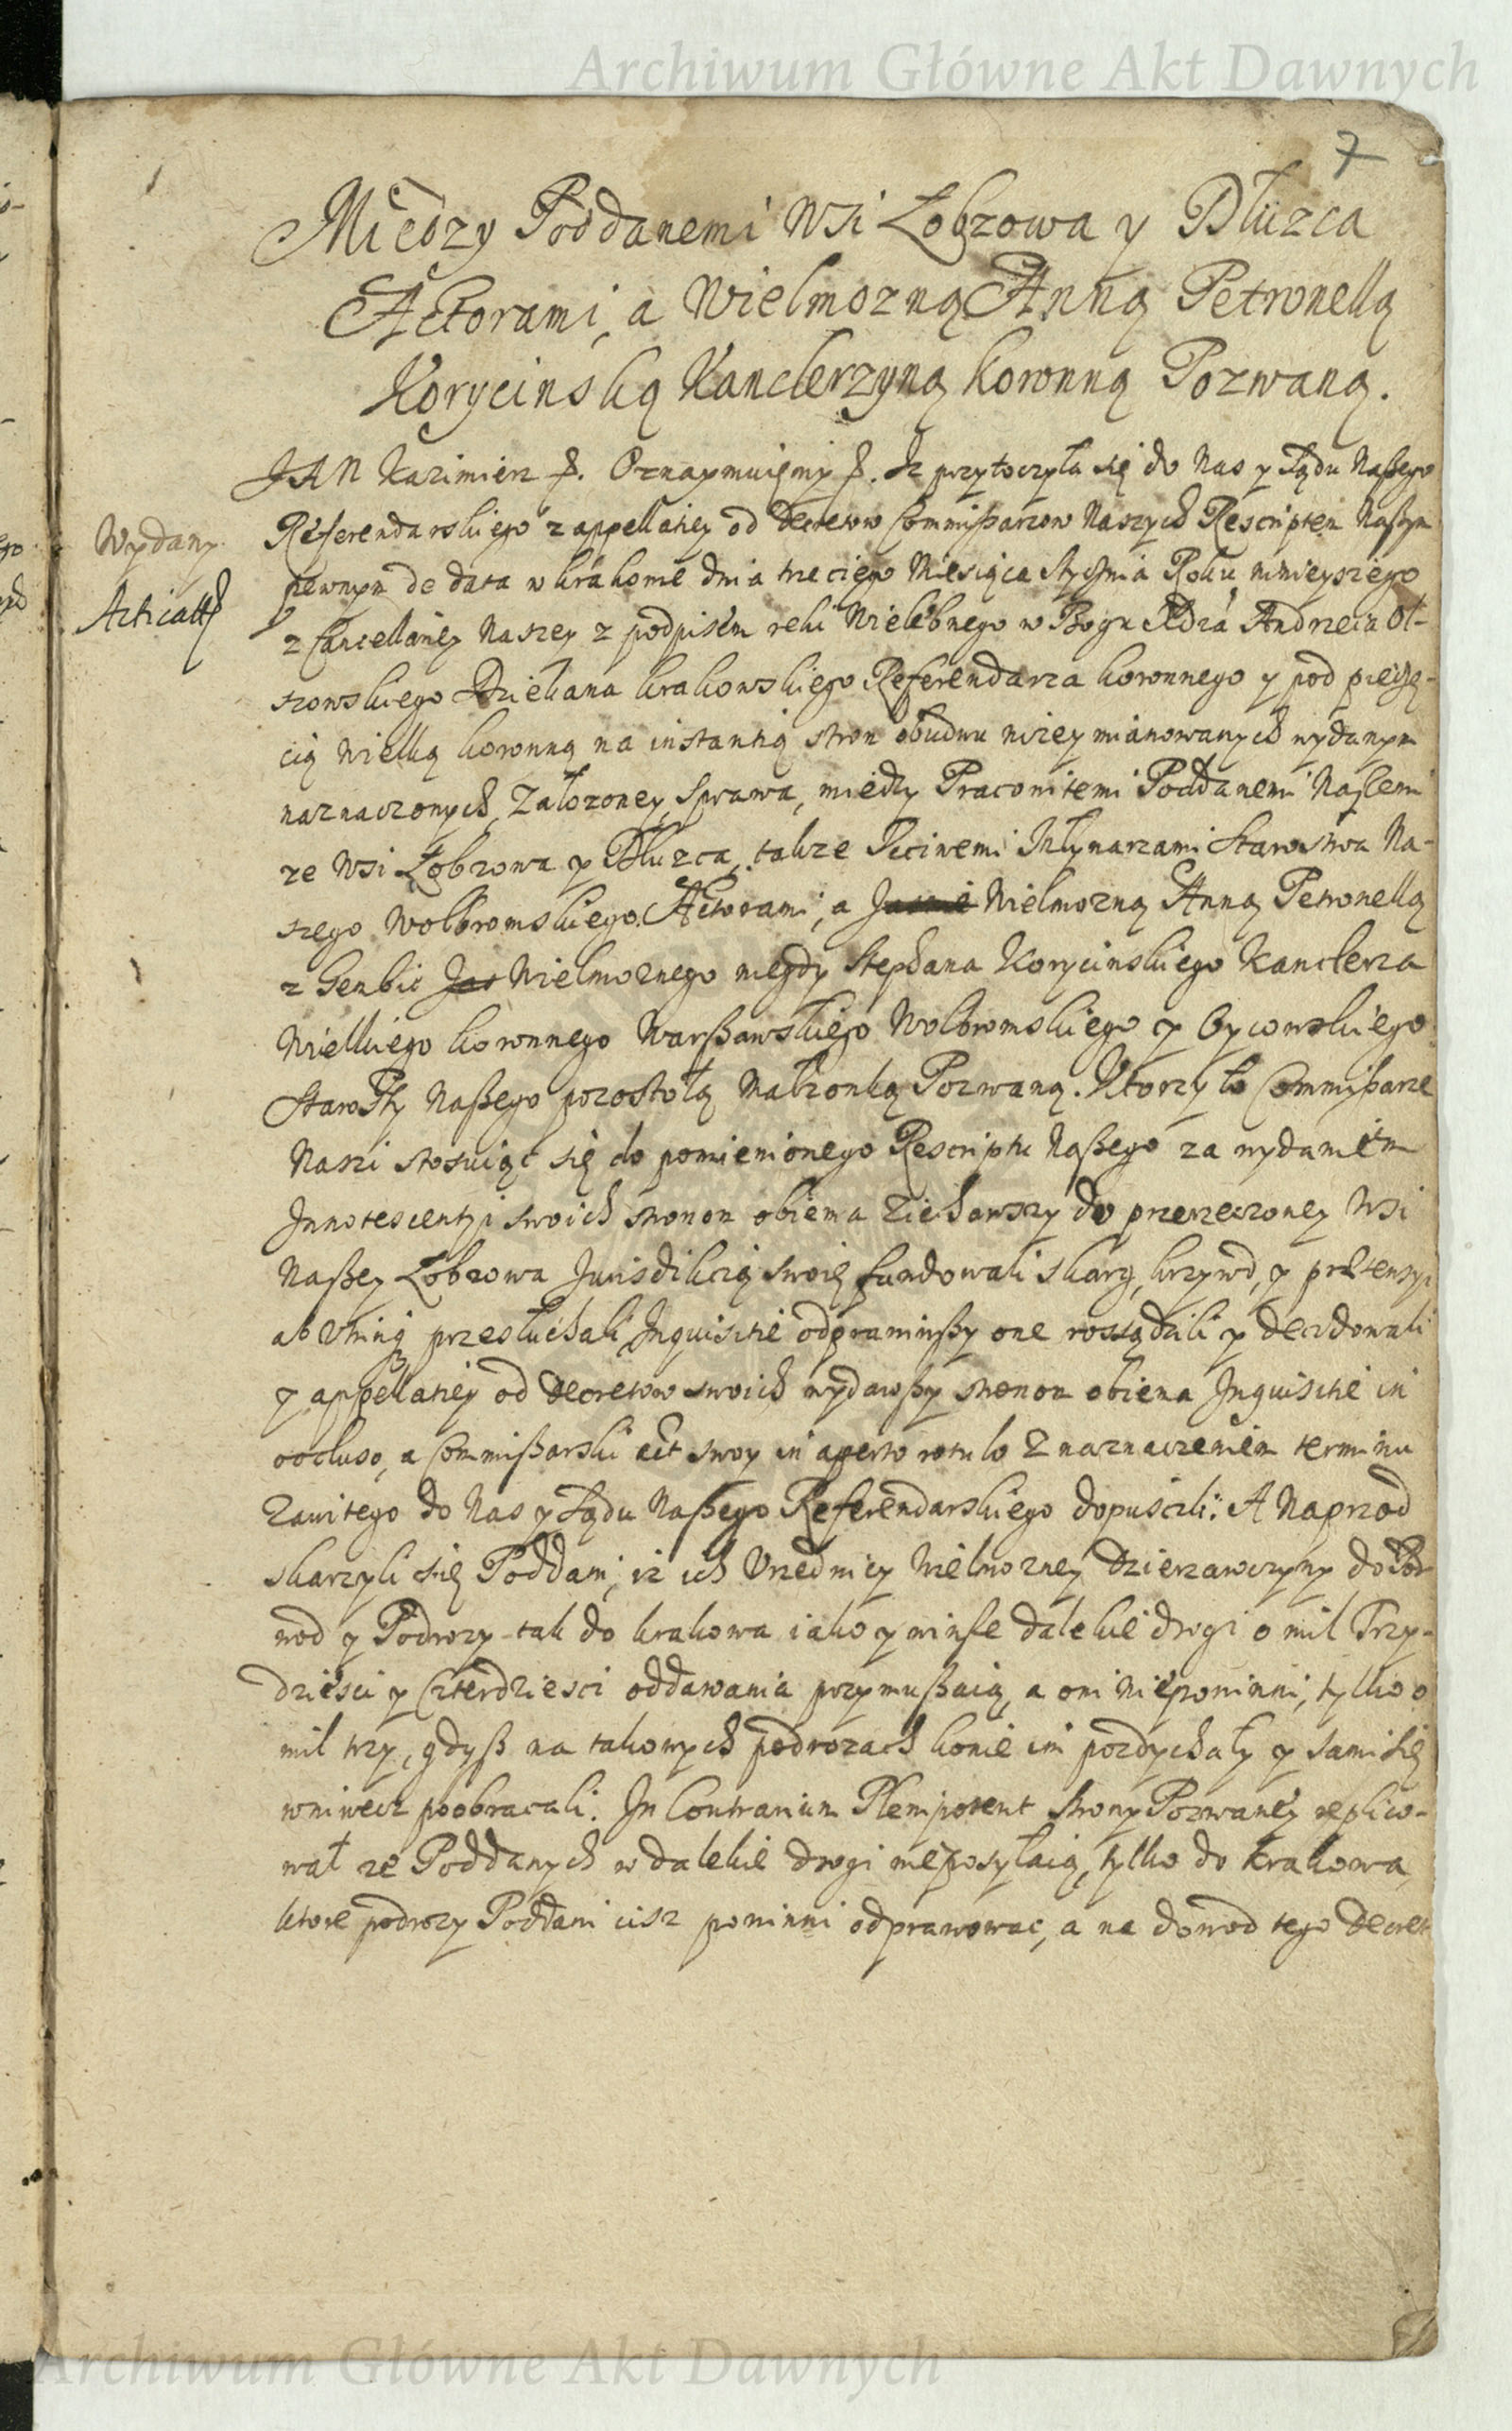 Archiwum Główne Akt Dawnych
7
Między Poddanemi Wsi Łobzowa y Dłuzca
Actorami, a Wielmozną Anną Petronellą
Korycinską Kanclerzyną koronną Pozwaną.
JAN Kazimierz Oznaymuięmy Iz przytoczyła się do Nas y Sądu Naßego
Wydany
Referendarskiego z appellatiey od Decretow Commißarzow Naszych Rescriptem Naßym
pewnym de data w krakowie dnia trzeciego Miesiąca Stycznia Roku ninieyszego
z Cancellariey Naszey z podpisem reki Wielebnego w Bogu Xdza Andrzeia Ol-
szowskiego Dziekana krakowskiego Referendarza koronnego y pod pieczę-
cią wielką koronną na instantią stron obudwu nizey mianowanych wydanym
naznaczonych, Załozoney, Sprawa, miedzy Pracowitemi Poddanemi Naßemi
ze Wsi Łobzowa y Dłuzca, takze Młynarzami Starostwa Na-
szego Wolbromskiego Actorami, a Wielmozną Anną Petronellą
z Genbic Wielmoznego niegdy Stephana Korycinskiego Kanclerza
Wielkiego koronnego Warßawskiego Wolbromskiego y Oycowskiego
Starosty Naßego pozostałą Małzonką Pozwaną. Ktorzy to Commißarze
Naszi stosuiąc się do pomienionego Rescriptu Naßego za wydaniem
Innotescentyi swoich stronom obiema Ziechawszy do przerzeczoney Wsi
Naßey Łobzowa Jurisdikcią swoię fundowali skarg, krzywd, y prætensyi
ab utrinq przesłuchali Inquisitie odprawiwßy one rossądzili y decidowali
y appellatiey od Decretow swoich wydawßy stronom obiema Inquisitie in
occluso, a Commißarski act swoy in aperto rotulo Z naznaczeniem terminu
Zawitego do Nas y Sądu Naßego Referendarskiego dopuscili: A Naprzod
skarzyli się Poddani, iz ich Urzednicy Wielmozney Dzierzawczyny do Pod-
wod y Podrozy tak do krakowa iako y w insze dalekie drogi o mil Trzy-
dziesci y Czterdziesci oddawania przymußaią, a oni niepowinni, tylko o
mil trzy, gdyß na takowych podrozach konie im pozdychały y sami się
wniwecz poobracali. In Contrarium Plenipotent Strony Pozwaney replico-
wał ze Poddanych w dalekie drogi nieposyłaią, tylko do krakowa
ktore podrozy Poddani cisz powinni odprawowac, a na dowod tego Decret
Archiwum Główne Akt Dawnych